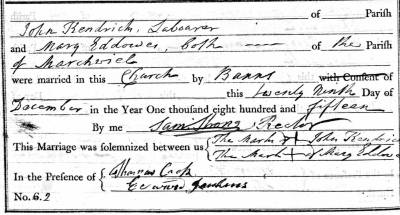 of Parish
John Kendrick, Labourer
and Mary Eddowes, both of the Parish
of Marchwiel
were married in this Church by Banns with Consent of
this twenty Ninth Day of
December in the Year One thousand eight hundred and fifteen
By me Rector
This Marriage was solemnized between us { The Mark + John Kendrick
The Mark + of Mary Eddowes
In the Presence of { Thomas
Edward Jenkins
No. 62